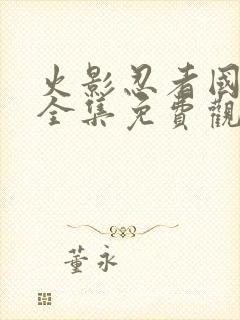 火影忍者國
全集免費觀
董永